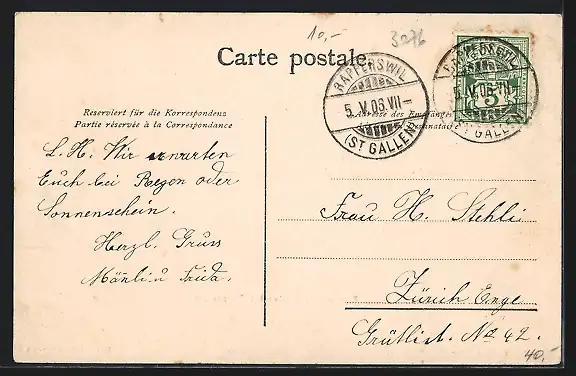 10,-
3276
Carte postale.
RAPPERSWIL
5. V. 06. VII-
(ST GALLEN)
RAPPERSWIL
5. V. 06. VII-
(ST GALLEN)
5
Reserviert für die Korrespondenz
Partie réservée à la Correspondance
Adresse des Empfängers
Destinataire
L. H. Wir erwarten
Euch bei Regen oder
Sonnenschein.
Herzl. Gruss
Frida.
Frau H. Stehli
Zürich Enge
Grütlist. No 42.
40,-